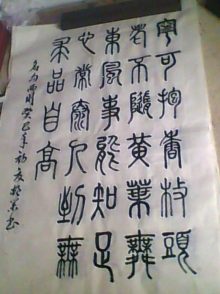 寧可抱香枝頭
老不隨黃葉舞
東風事能知足
心常泰人到無
求品自高
癸巳年初夏 書